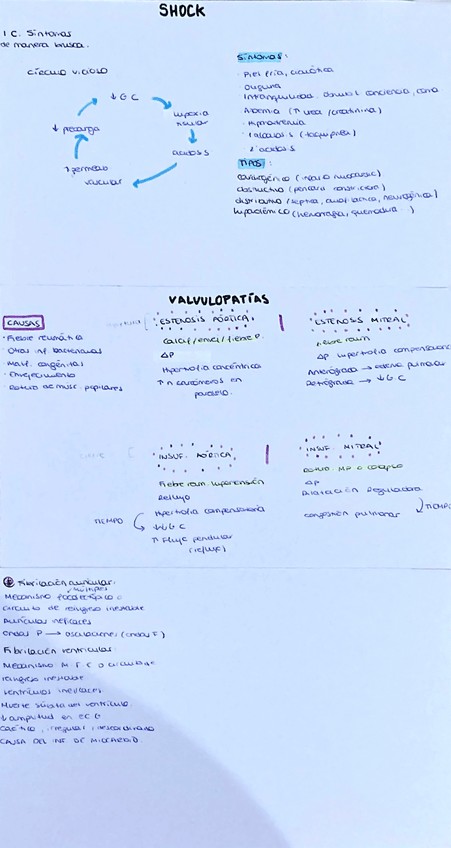 SHOCK
I.C. Síntomas
de manera brusca.
círculo vicioso
↓ G C
hipoxia
tisular
acidosis
↑ permeab
vascular
↓ precarga
Síntomas:
· Piel fría, cianótica
· Oliguria
· Intranquilidad
· Hiponatremia
TIPOS:
cardiogénico
obstructivo (pericard. constrictiva)
distributivo (séptica, anafiláctica, neurogénica)
hipovolémico (hemorragia, quemadura...)
VALVULOPATÍAS
CAUSAS
· Fiebre reumática
· Otras inf. bacterianas
· Malf. congénitas
· Envejecimiento
· Rotura de musc. papilares
ESTENOSIS AÓRTICA
ΔP
Hipertrofia concéntrica
↑ n sarcómeros en
paralelo.
ESTENOSIS MITRAL
Fiebre reum
ΔP hipertrofia compensadora
Anterógrada → edema pulmonar
Retrógrada → ↓ G C
INSUF. AÓRTICA
Fiebre reum. hipertensión
Reflujo
Hipertrofia compensadora
TIEMPO
↓ G C
↑ Flujo pendular
(reflujo)
INSUF. MITRAL
Rotura MP o colapso
ΔP
Dilatación Reguladora
congestión pulmonar
TIEMPO
Fibrilación auricular:
múltiples
Mecanismo
circuito de reingreso inestable
Aurículas ineficaces
ondas P → oscilaciones (ondas F)
Fibrilación ventricular:
Mecanismo
reingreso inestable
ventrículos ineficaces
Muerte súbita del ventrículo.
↓ amplitud en ECG
Caótico, irregular, descoordinado
CAUSA DEL INF. DE MIOCARDIO.